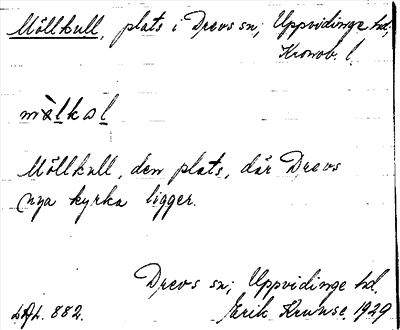 Möllkull, plats i Drevs sn, Uppvidinge hd,
Kronob. l.
Möllkull, den plats, där Drevs
nya kyrka ligger.
Drevs sn, Uppvidinge hd.
882. Erik Kruuse. 1929